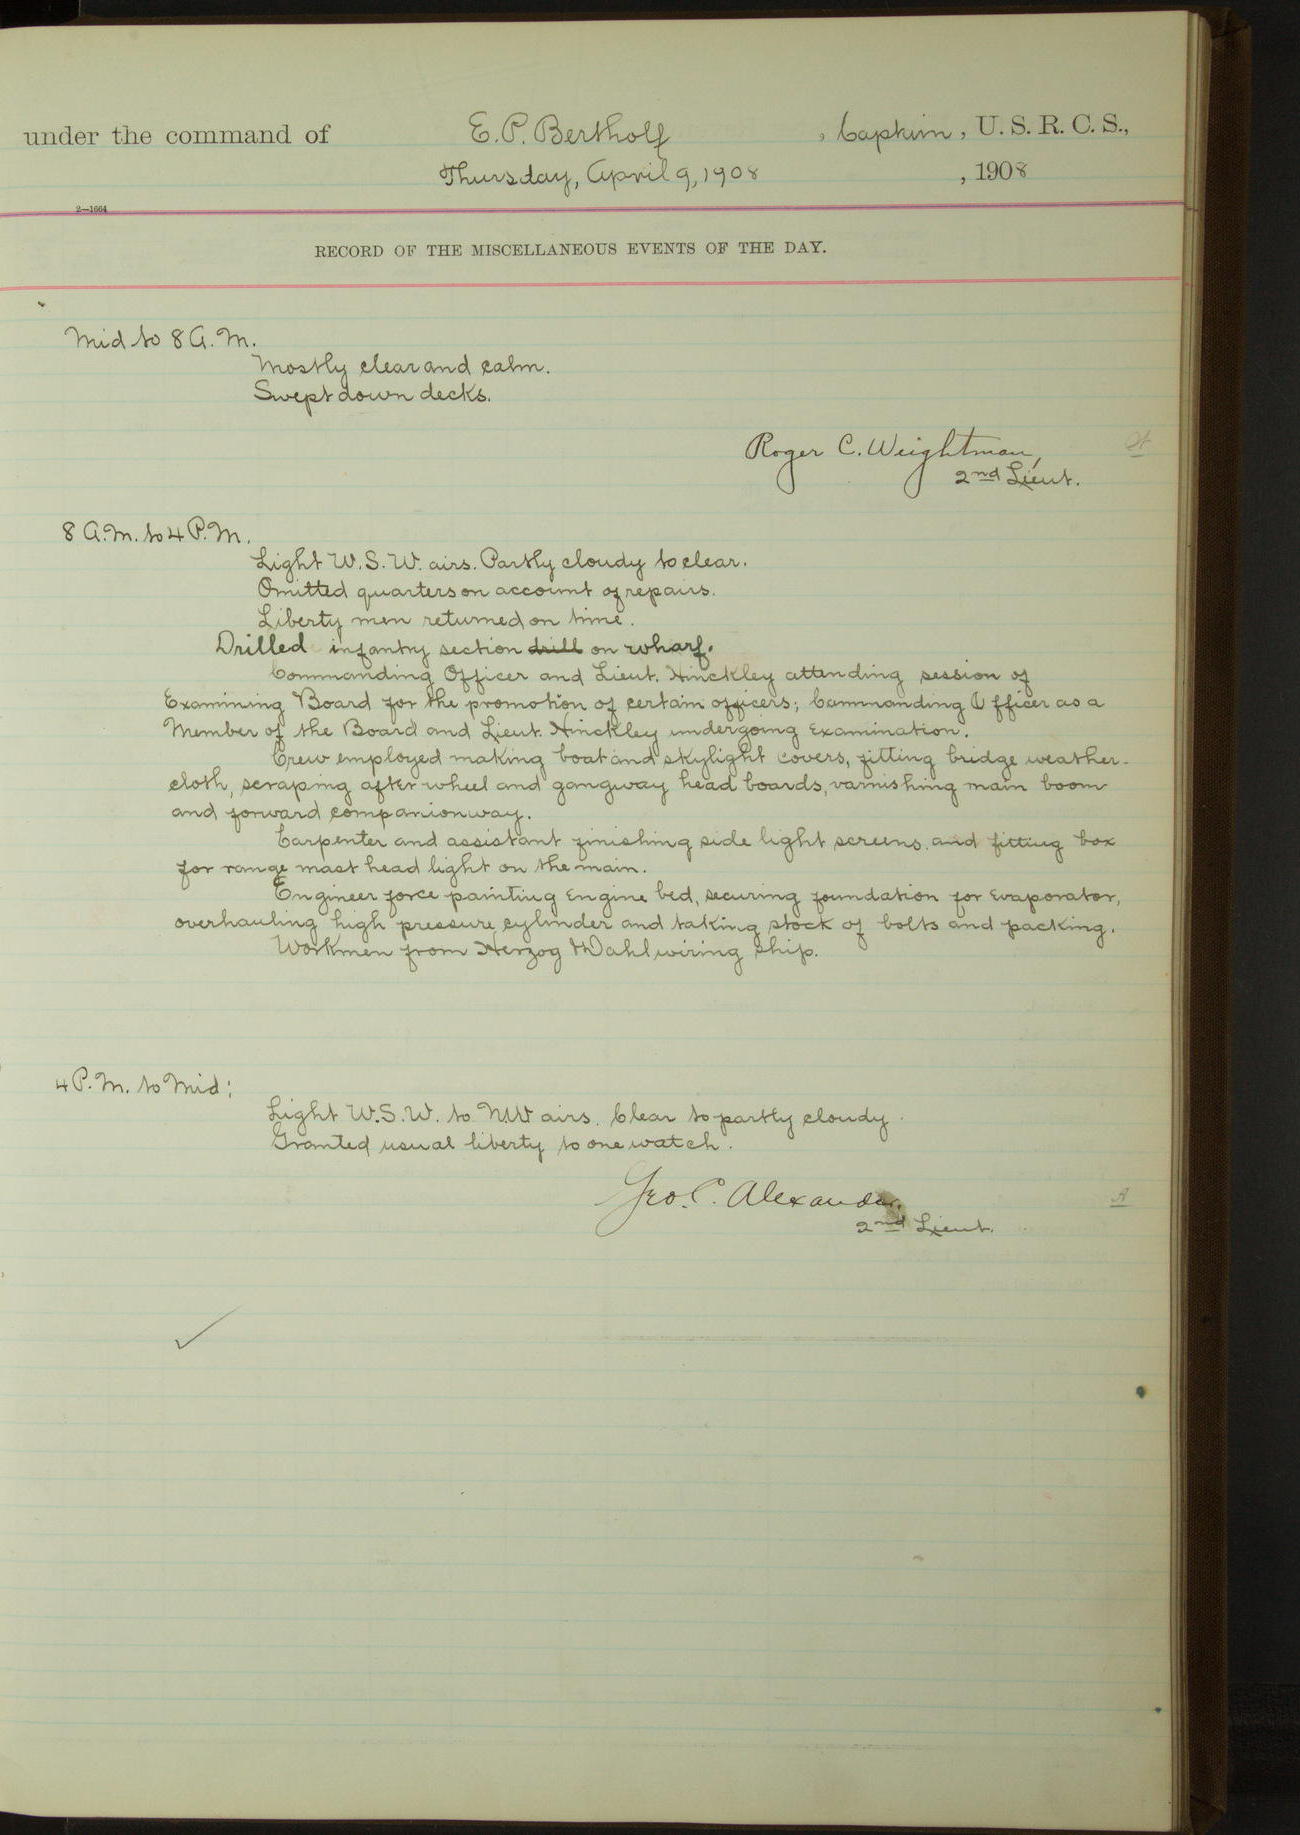 under the command of E. P. Bertholf, Captain, U. S. R. C. S.,
Thursday, April 9, 1908, 1908
2—1664
RECORD OF THE MISCELLANEOUS EVENTS OF THE DAY.
Mid to 8 A.M.
Mostly clear and calm.
Swept down decks.
Roger C. Weightman,
2nd Lieut.
8 A.M. to 4 P.M.
Light W.S.W. airs. Partly cloudy to clear.
Omitted quarters on account of repairs.
Liberty men returned on time.
Drilled infantry section drill on wharf.
Commanding Officer and Lieut. Hinckley attending session of
Examining Board for the promotion of certain officers; Commanding Officer as a
Member of the Board and Lieut. Hinckley undergoing Examination.
Crew employed making boat and skylight covers, fitting bridge weather-
cloth, scraping after wheel and gangway head boards, varnishing main boom
and forward companionway.
Carpenter and assistant finishing side light screens and fitting box
for range mast head light on the main.
Engineer force painting Engine bed, securing foundation for Evaporator,
overhauling high pressure cylinder and taking stock of bolts and packing.
Workmen from Herzog & Dahl wiring ship.
4 P.M. to Mid:
Light W.S.W. to NW airs. Clear to partly cloudy.
Granted usual liberty to one watch.
Geo. C. Alexander.
A
2nd Lieut.